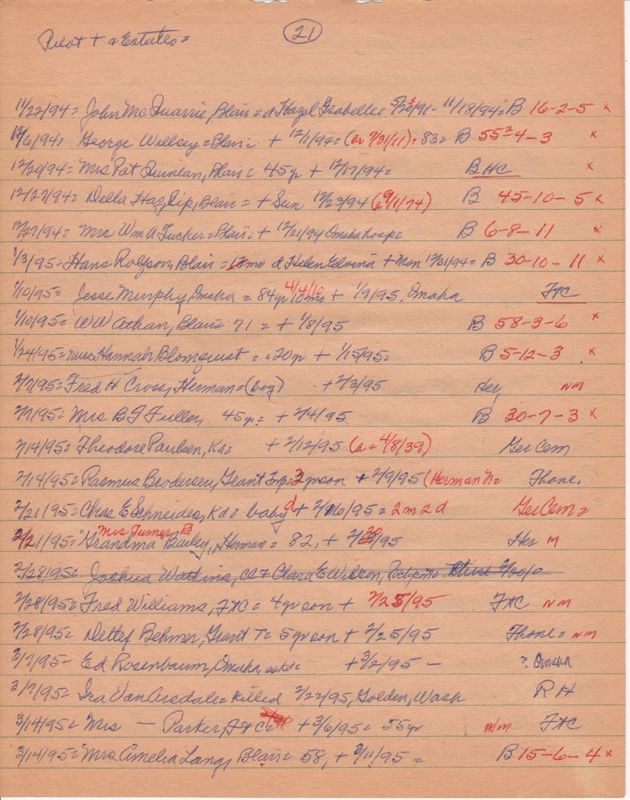 Pilot + & Estates =
21
11/22/94 = John McQuarrie, Blair = d Hazel Isabelle = 5/23/91 - 11/18/94 = B 16-2-5 x
12/6/94 = George Willsey = Blair = + 12/1/94 = (a= 7/31/11) = 83 = B 55-4-3 x
12/20/94 = Mrs Pat Quinlan, Blair = 45 yr + 12/17/94 = BHC x
12/27/94 = Della Hazlip, Blair = + Sun 12/23/94 (a 9/11/74) B 45-10-5 x
12/27/94 = Mrs Wm A Tucker = Blair = + 12/21/94 Omaha Hosp = B 6-8-11 x
1/3/95 = Hans Rolfson, Blair = 13 mo d Helen Edvina + Mon 12/31/94 = B 30-10-11 x
1/10/95 = Jesse Murphy, Omaha = 84 yr 10 mo + 1/9/95, Omaha FtC
1/10/95 = WW Athan, Blair = 71 = + 1/8/95 B 58-3-6 x
1/24/95 = Miss Hannah Blomquist = = 20 yr + 1/15/95 = B 5-12-3 x
2/7/95 = Fred H Cross, Herman = (boy) + 2/3/95 Her NM
2/7/95 = Mrs B F Fuller, 45 yr = + 2/4/95 B 30-7-3 x
2/14/95 = Theodore Paulsen, Ka = + 2/12/95 (a = 4/8/39) Ger Cem
2/14/95 = Rasmus Brodersen, Grant Twp = 3 yr son + 2/9/95 (Herman N = Fhone.
2/21/95 = Chas E Schneider, Kd = baby d + 2/16/95 = 2m 2d Ger Cem =
Mrs Turner, B
2/21/95 = "Grandma Bailey, Herman = 82, + 2/20/95 Her M
2/28/95 = Joshua Watkins, CA + Clara E Wilson,
2/28/95 = Fred Williams, FtC = 4 yr son + 2/25/95 FtC NM
2/28/95 = Detlef Behmer, Grant T = 5 yr son + 2/25/95 Fhone = NM
3/7/95 - Ed Rosenbaum, Omaha, + 3/2/95 - ? Omaha
3/7/95 = Ira Van Arsdale = Killed 2/22/95, Golden, Wash RH
3/14/95 = Mrs — Parker, FtC = + 3/6/95 = 55 yr m/m FtC
3/14/95 = "Mrs Amelia Lang, Blair = 58, + 3/11/95 = B 15-6-4 x